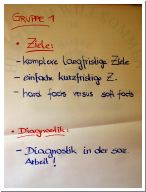 GRUPPE 1
• Ziele:
- komplexe langfristige Ziele
- einfache kurzfristige Z.
- hard facts versus soft facts
• Diagnostik:
- Diagnostik in der soz.
Arbeit!